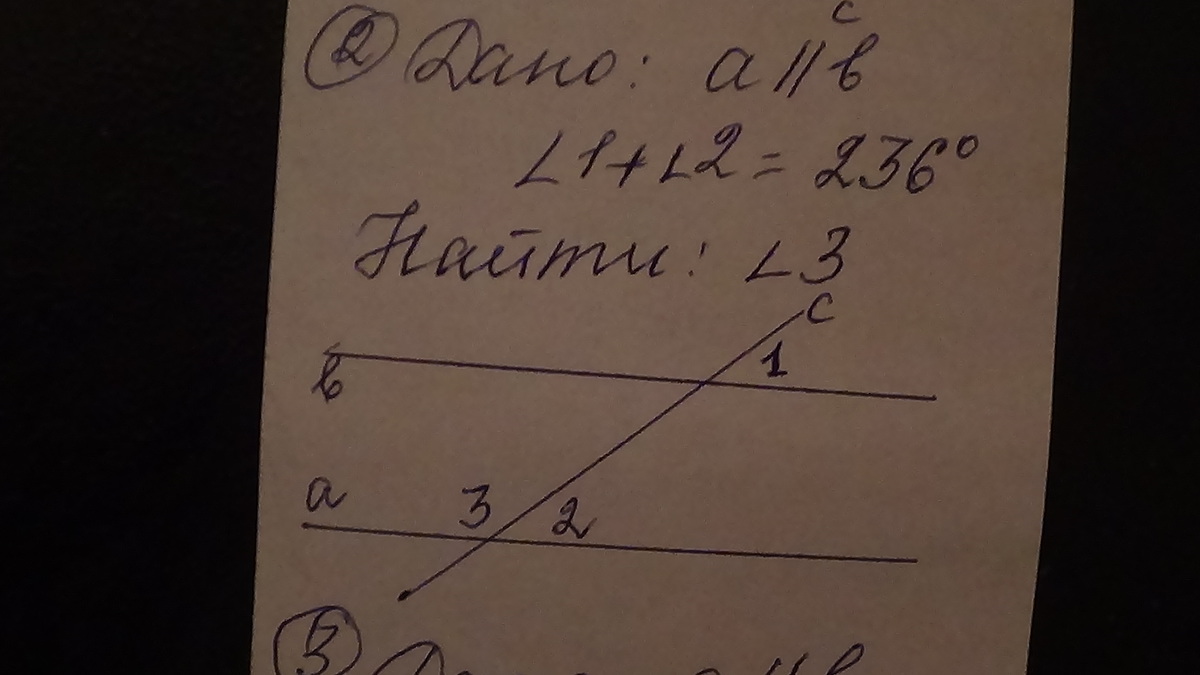 с
② Дано: a || b
∠1+∠2 = 236°
Найти: ∠3
c
1
b
a
3
2
③